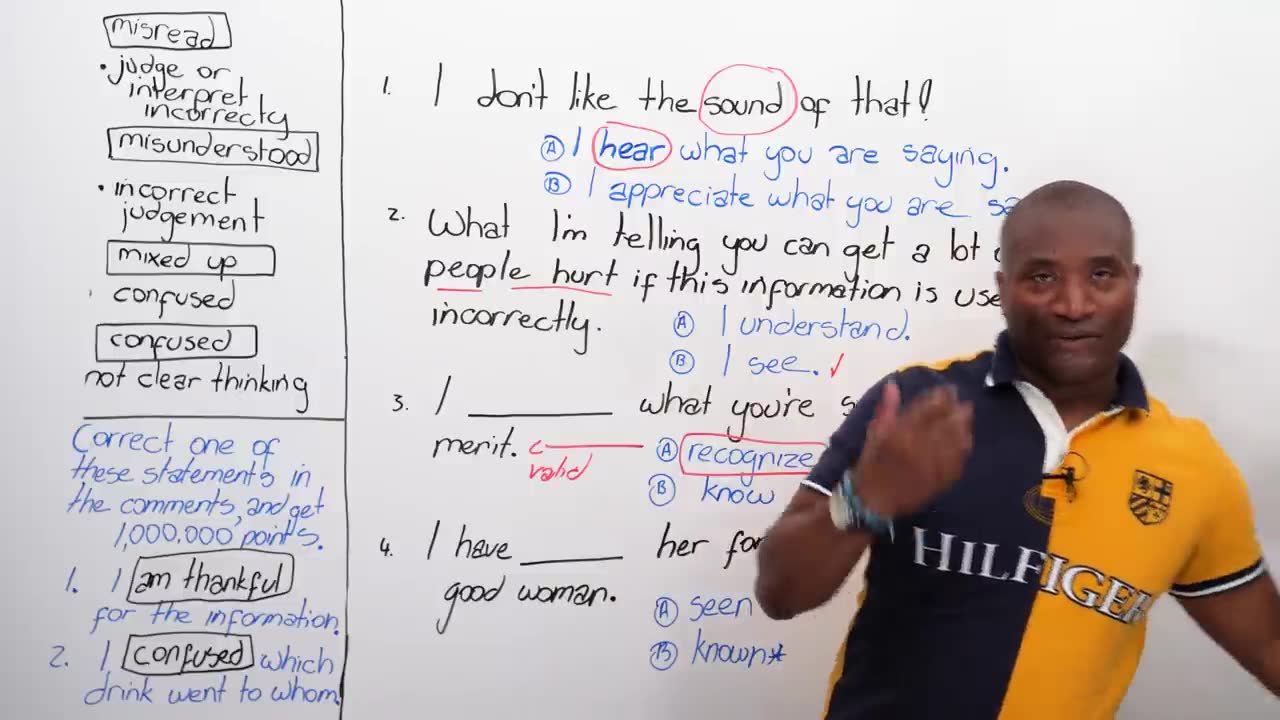 misread
• judge or
interpret
incorrecty
misunderstood
• incorrect
judgement
mixed up
confused
confused
not clear thinking
Correct one of
these statements in
the comments, and get
1,000,000 points.
1. I am thankful
for the information.
2. I confused which
drink went to whom.
1. I don't like the sound of that!
A I hear what you are saying.
B I appreciate what you are
2. What I'm telling you can get a lot
people hurt if this information is
incorrectly.
A I understand.
B I see. ✓
3. I ________ what you're
merit.
valid
A recognize
B know
4. I have ________ her
good woman.
A seen
B known*
HILFIGER